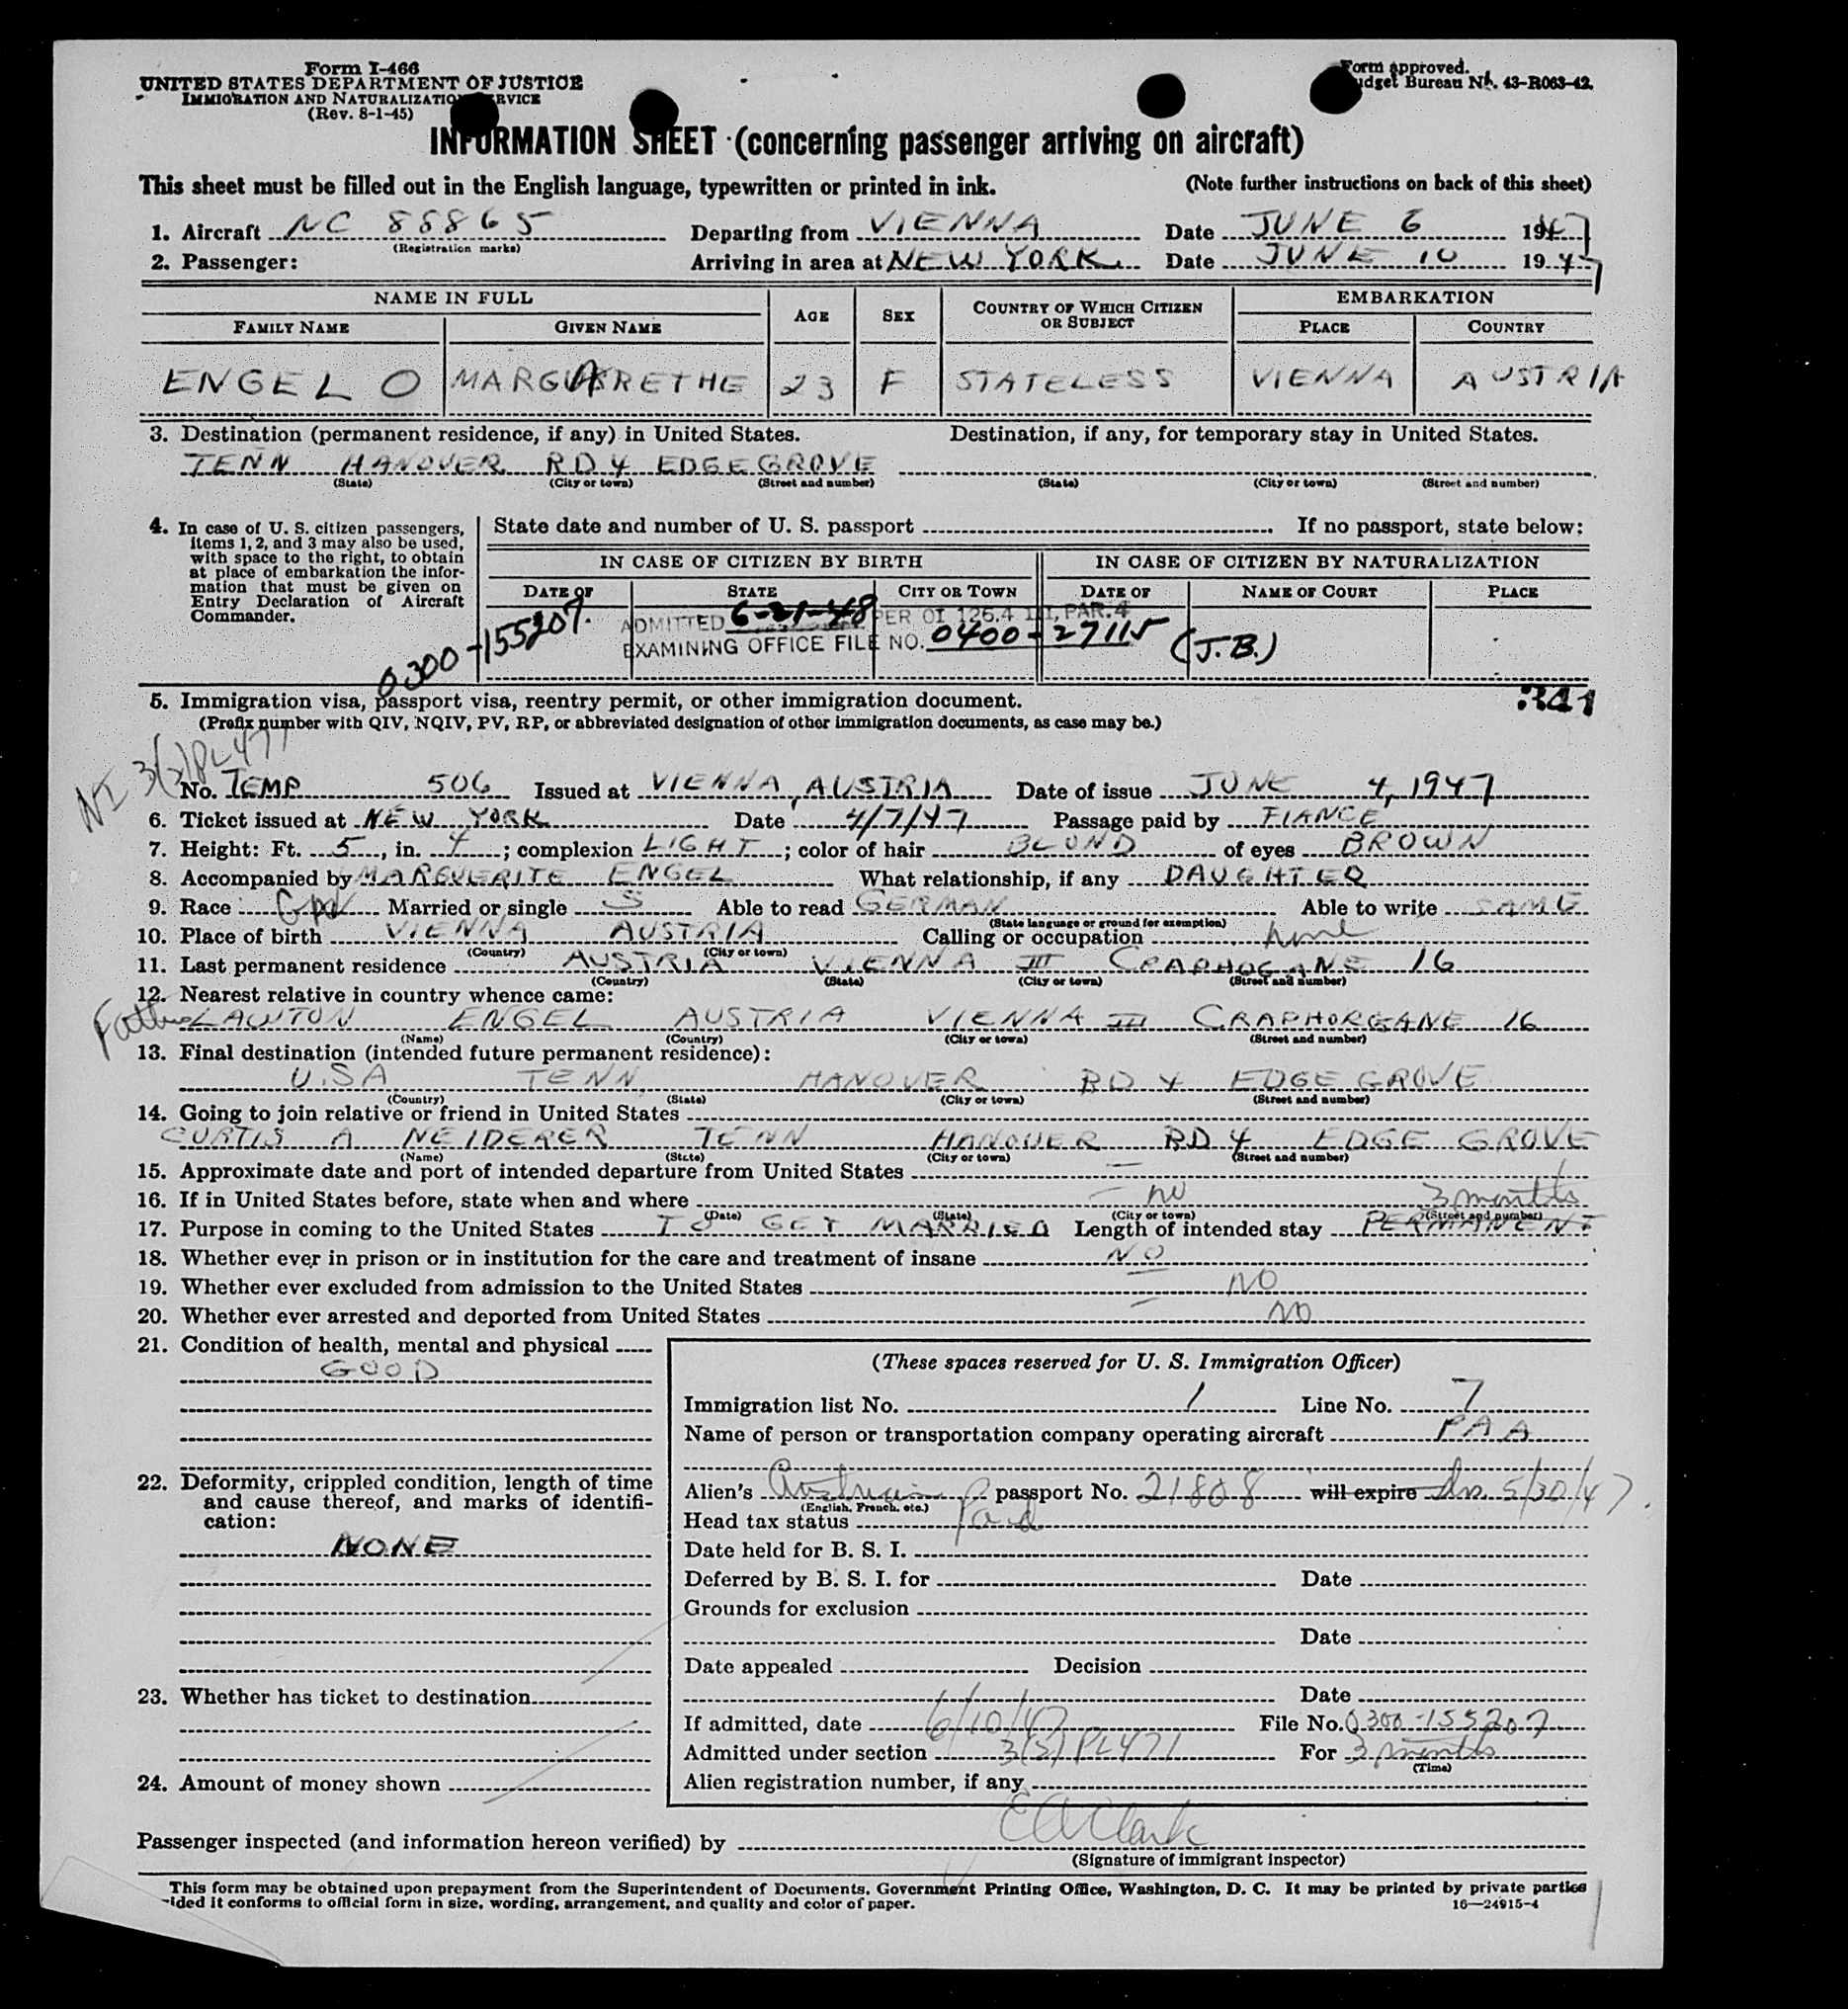 Form I-466
UNITED STATES DEPARTMENT OF JUSTICE
IMMIGRATION AND NATURALIZATION SERVICE
(Rev. 8-1-45)
Form approved.
Budget Bureau No. 43-R063-42.
INFORMATION SHEET (concerning passenger arriving on aircraft)
This sheet must be filled out in the English language, typewritten or printed in ink. (Note further instructions on back of this sheet)
1. Aircraft NC 88865 Departing from VIENNA Date JUNE 6 1947
(Registration marks)
2. Passenger: Arriving in area at NEW YORK Date JUNE 10 1947
NAME IN FULL AGE SEX COUNTRY OF WHICH CITIZEN OR SUBJECT EMBARKATION
FAMILY NAME GIVEN NAME PLACE COUNTRY
ENGEL O MARGARETHE 23 F STATELESS VIENNA AUSTRIA
3. Destination (permanent residence, if any) in United States. Destination, if any, for temporary stay in United States.
TENN HANOVER RD 4 EDGEGROVE
(State) (City or town) (Street and number) (State) (City or town) (Street and number)
4. In case of U. S. citizen passengers, items 1, 2, and 3 may also be used, with space to the right, to obtain at place of embarkation the information that must be given on Entry Declaration of Aircraft Commander.
State date and number of U. S. passport If no passport, state below:
IN CASE OF CITIZEN BY BIRTH IN CASE OF CITIZEN BY NATURALIZATION
DATE OF STATE CITY OR TOWN DATE OF NAME OF COURT PLACE
0300-155207. ADMITTED 6-21-48 PER OI 126.4 PAR. 4
EXAMINING OFFICE FILE NO. 0400-27115 (J.B.)
5. Immigration visa, passport visa, reentry permit, or other immigration document.
(Prefix number with QIV, NQIV, PV, RP, or abbreviated designation of other immigration documents, as case may be.)
No. TEMP 506 Issued at VIENNA, AUSTRIA Date of issue JUNE 4, 1947
6. Ticket issued at NEW YORK Date 4/7/47 Passage paid by FIANCE
7. Height: Ft. 5, in. 4; complexion LIGHT; color of hair BLOND of eyes BROWN
8. Accompanied by MARGUERITE ENGEL What relationship, if any DAUGHTER
9. Race Married or single S Able to read GERMAN Able to write SAME
(State language or ground for exemption)
10. Place of birth VIENNA AUSTRIA Calling or occupation none
(Country) (City or town)
11. Last permanent residence AUSTRIA VIENNA III CRAPHOGANE 16
(Country) (State) (City or town) (Street and number)
12. Nearest relative in country whence came:
Father LAWTON ENGEL AUSTRIA VIENNA III CRAPHORGANE 16
(Name) (Country) (City or town) (Street and number)
13. Final destination (intended future permanent residence):
U.S.A TENN HANOVER RD 4 EDGE GROVE
(Country) (State) (City or town) (Street and number)
14. Going to join relative or friend in United States
CURTIS A NEIDERER TENN HANOVER RD 4 EDGE GROVE
(Name) (State) (City or town) (Street and number)
15. Approximate date and port of intended departure from United States —
16. If in United States before, state when and where no 3 months
(Date) (State) (City or town) (Street and number)
17. Purpose in coming to the United States TO GET MARRIED Length of intended stay PERMANENT
18. Whether ever in prison or in institution for the care and treatment of insane NO
19. Whether ever excluded from admission to the United States NO
20. Whether ever arrested and deported from United States NO
21. Condition of health, mental and physical
GOOD
22. Deformity, crippled condition, length of time and cause thereof, and marks of identification:
NONE
23. Whether has ticket to destination
24. Amount of money shown
(These spaces reserved for U. S. Immigration Officer)
Immigration list No. 1 Line No. 7
Name of person or transportation company operating aircraft PAA
Alien's Austrian passport No. 21808 will expire Iss. 5/30/47.
(English, French, etc.)
Head tax status Paid
Date held for B. S. I.
Deferred by B. S. I. for Date
Grounds for exclusion
Date
Date appealed Decision
Date
If admitted, date 6/10/47 File No. 0300-155207
Admitted under section 3(2) PL 471 For 3 months
(Time)
Alien registration number, if any
Passenger inspected (and information hereon verified) by E A Clark
(Signature of immigrant inspector)
This form may be obtained upon prepayment from the Superintendent of Documents, Government Printing Office, Washington, D. C. It may be printed by private parties
ided it conforms to official form in size, wording, arrangement, and quality and color of paper. 16—24915-4